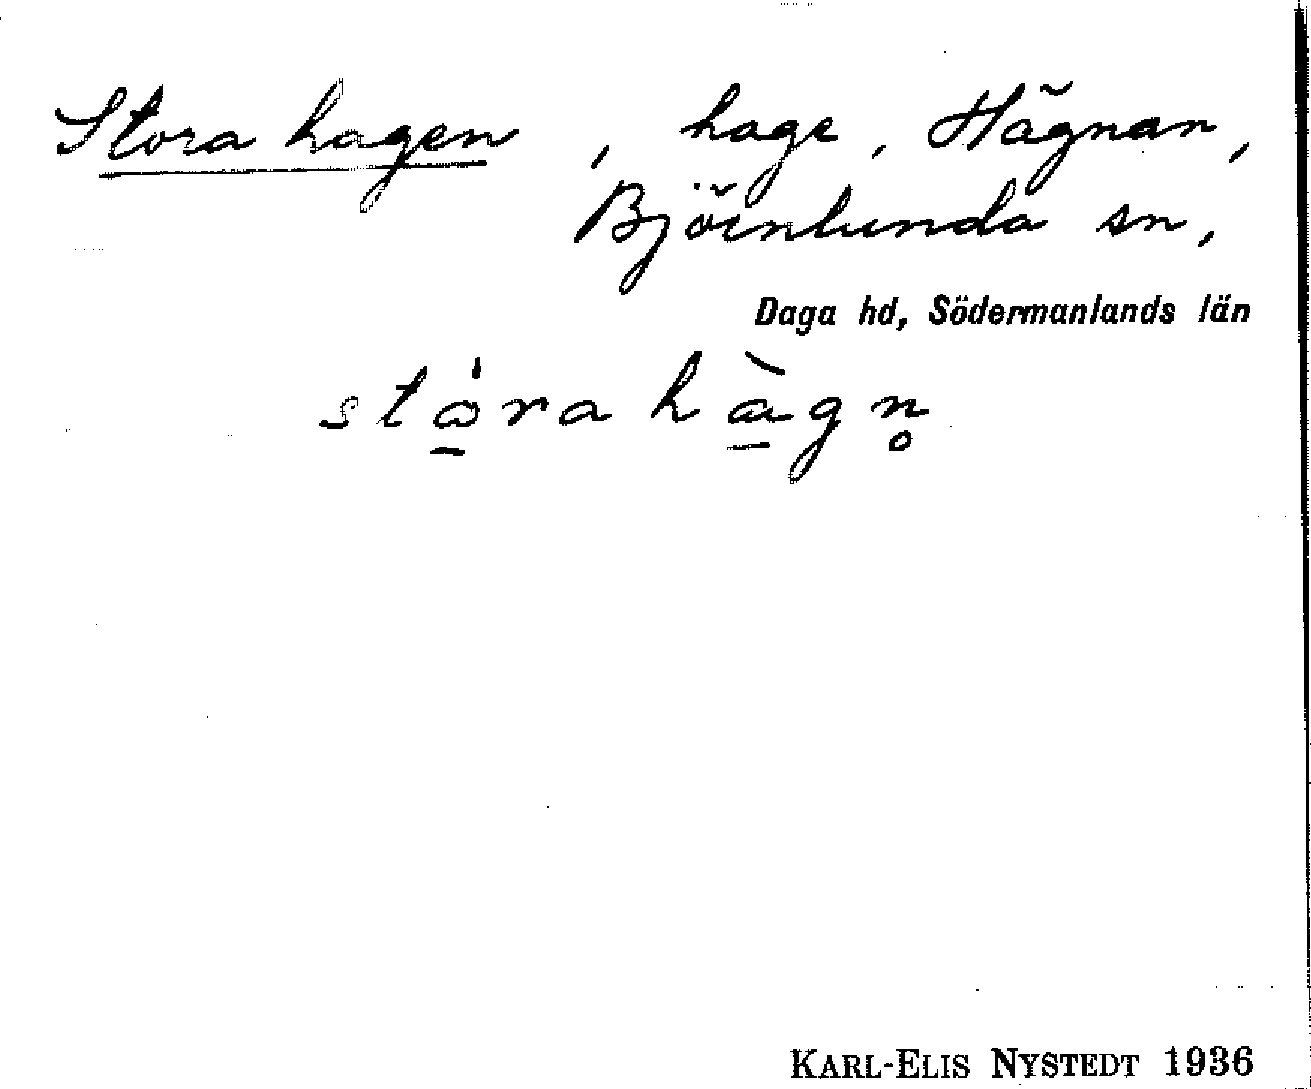 Stora hagen, hage, Hägnan,
Björnlunda sn,
Daga hd, Södermanlands län
stώ̱ra hà̱gn̥
KARL-ELIS NYSTEDT 1936